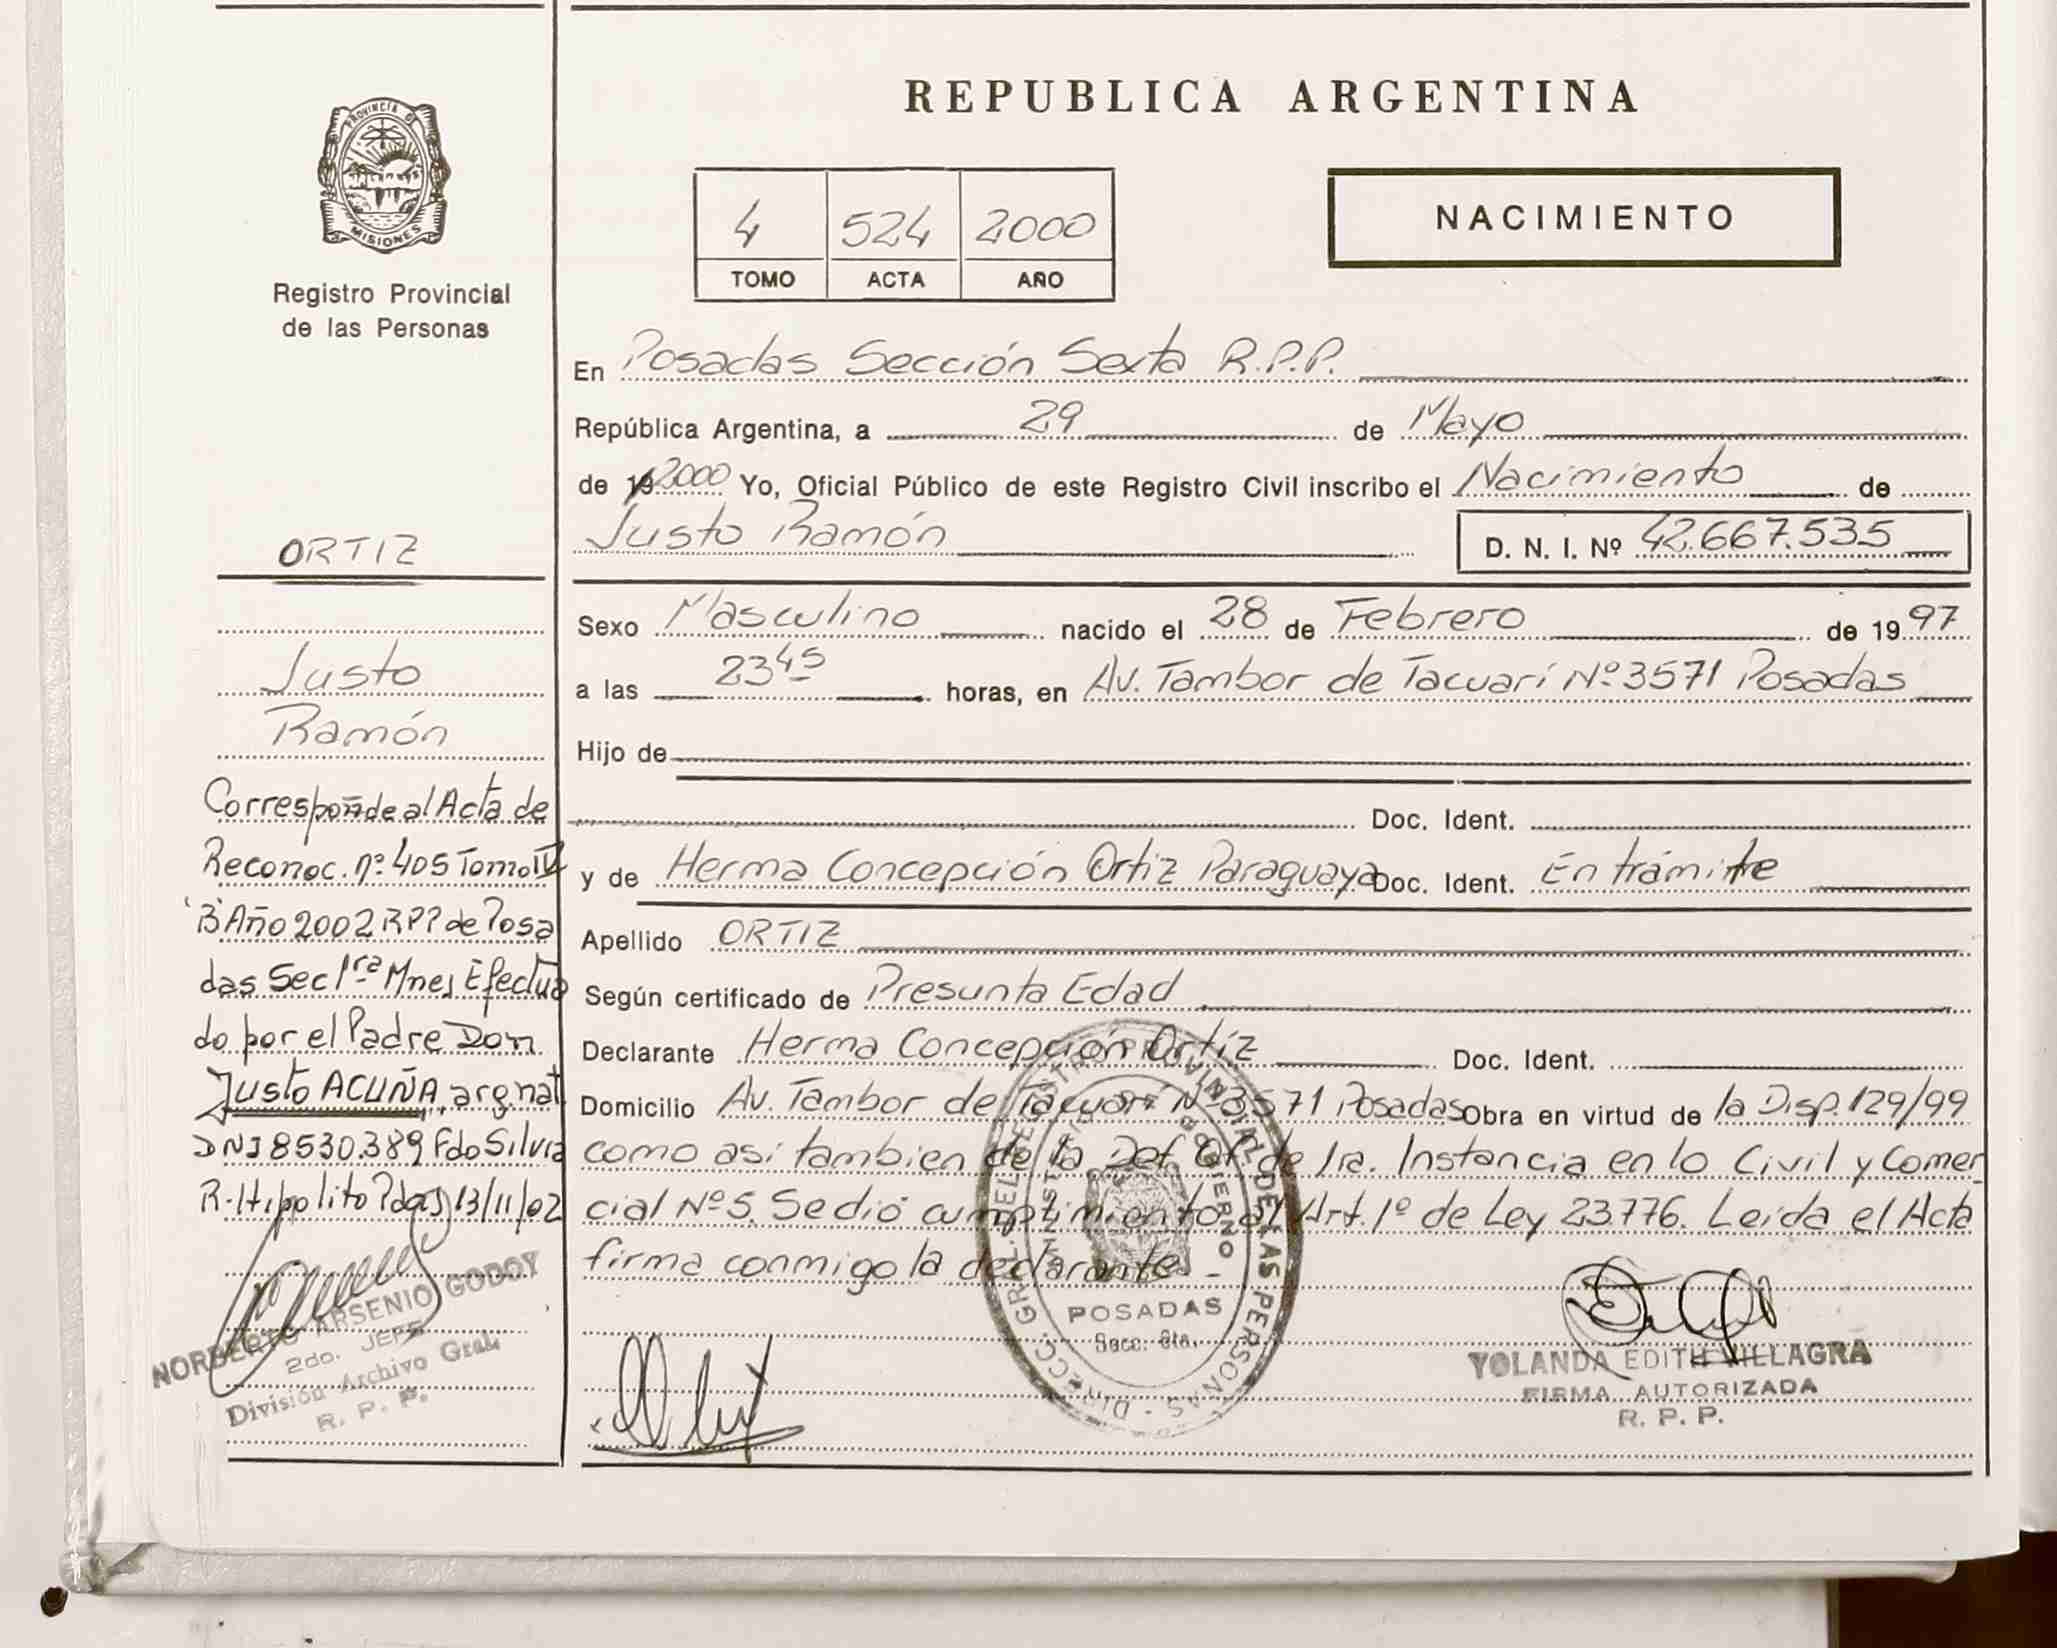 REPUBLICA ARGENTINA
PROVINCIA DE
MISIONES
Registro Provincial
de las Personas
4 524 2000
TOMO ACTA AÑO
NACIMIENTO
En Posadas Sección Sexta R.P.P.
República Argentina, a 29 de Mayo
de 19 2000 Yo, Oficial Público de este Registro Civil inscribo el Nacimiento de
Justo Ramón D. N. I. Nº 42.667.535
Sexo Masculino nacido el 28 de Febrero de 19 97
a las 23 45 horas, en Av. Tambor de Tacuarí Nº 3571 Posadas
Hijo de
Doc. Ident.
y de Herma Concepción Ortiz Paraguaya Doc. Ident. En trámite
Apellido ORTIZ
Según certificado de Presunta Edad
Declarante Herma Concepción Ortíz Doc. Ident.
Domicilio Av. Tambor de Tacuarí Nº 3571 Posadas Obra en virtud de la Disp. 129/99
como así tambien de la Def. Of. de 1ra. Instancia en lo Civil y Comer
cial Nº 5. Se dió cumplimiento al Art. 1º de Ley 23.776. Leída el Acta
firma conmigo la declarante. -
ORTIZ
Justo
Ramón
Corresponde al Acta de
Reconoc. nº 405 Tomo IV
"B" Año 2002 RPP de Posa
das Sec 1ra Mnes Efectua
do por el Padre Don
Justo ACUÑA, arg nat
DNI 8530.389 Fdo Silvia
R. Hipolito Pdas 13/11/02
NORBERTO ARSENIO GODOY
2do. JEFE
División Archivo Gral.
R. P. P.
DIRECC. GRAL. DEL REGISTRO PROVINCIAL DE LAS PERSONAS
MINISTERIO DE GOBIERNO
POSADAS
Secc. 6ta.
YOLANDA EDITH VILLAGRA
FIRMA AUTORIZADA
R. P. P.